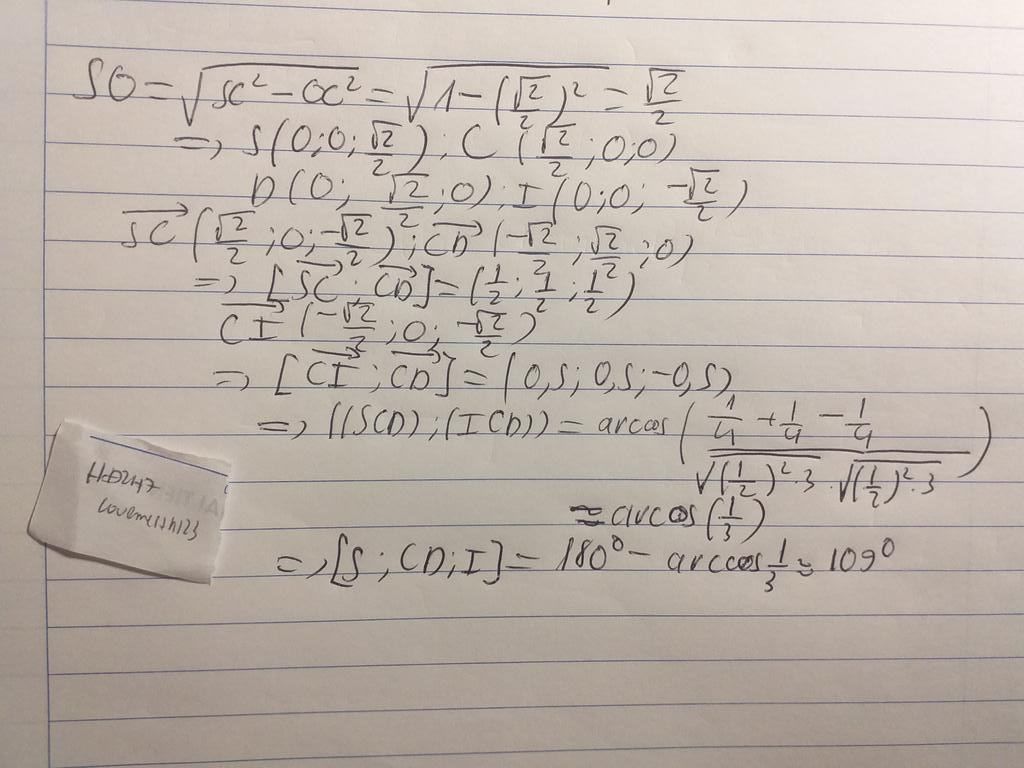 SO = √(SC² − OC²) = √(1 − (√2/2)²) = √2/2
=> S(0;0;√2/2); C(√2/2;0;0)
D(0; √2/2;0); I(0;0; -√2/2)
SC→(√2/2;0;-√2/2); CD→(-√2/2;√2/2;0)
=> [SC→.CD→] = (1/2;1/2;1/2)
CI→(-√2/2;0; -√2/2)
=> [CI→;CD→] = (0,5; 0,5; -0,5)
=> ((SCD);(ICD)) = arcos((1/4 + 1/4 − 1/4)/(√((1/2)².3).√((1/2)².3)))
= arcos(1/3)
=> [S;CD;I] = 180⁰ − arccos 1/3 ≈ 109⁰